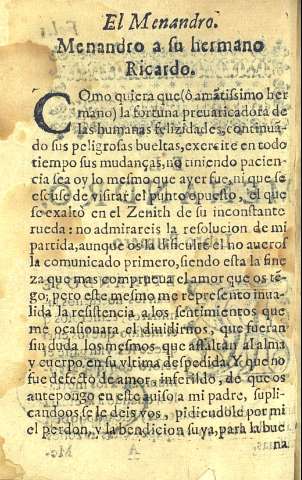 El Menandro.
Menandro a su hermano
Ricardo.
COmo quiera que (ò amãtissimo her
mano) la fortuna preuaricadora de
las humanas felizidades, continuã-
do sus peligrosas bueltas, exercite en todo
tiempo sus mudanças, no tiniendo pacien-
cia sea oy lo mesmo que ayer fue, ni que se
escuse de visitar el punto opuesto, el que
se exaltò en el Zenith de su inconstante
rueda: no admirareis la resolucion de mi
partida, aunque os lastimeis el no aueros
la comunicado primero, siendo esta la fine
za que mas comprueua el amor que os tẽ-
go, pero este mesmo me represento inua-
lida la resistencia a los sentimientos que
me ocasionara el diuidirnos, que fueran
sin duda los mesmos que assaltan al alma
y cuerpo en su vltima despedida. Y que no
fue defecto de amor, inferildo, de que os
antepongo en este auiso a mi padre, supli-
candoos se le deis vos, pidiẽdole por mi
el perdon, y la bendicion suya, para la bue
na